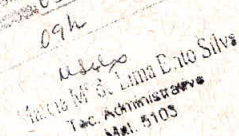 09h
M. S. Lima Bento Silva
Tec. Administrativo
Mat. 5103